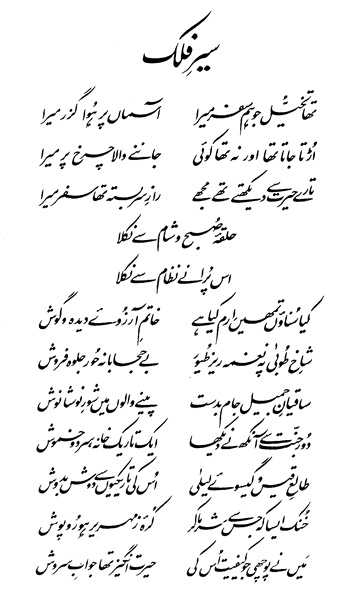 سیرِ فلک
تھا تخیّل جو ہم سفر میرا آسماں پر ہُوا گزر میرا
اُڑتا جاتا تھا اور نہ تھا کوئی جاننے والا چرخ پر میرا
تارے حیرت سے دیکھتے تھے مجھے رازِ سر بستہ تھا سفر میرا
حلقۂ صُبح و شام سے نکلا
اس پُرانے نظام سے نکلا
کیا سُناؤں تمھیں اِرم کیا ہے خاتمِ آرزوئے دیدہ و گوش
شاخِ طُوبیٰ پہ نغمہ ریز طیور بے حجابانہ حُور جلوہ فروش
ساقیانِ جمیل جام بدست پینے والوں میں شورِ نوشانوش
دُور جنّت سے آنکھ نے دیکھا ایک تاریک خانہ، سرد و خموش
طالعِ قیس و گیسوئے لیلیٰ اُس کی تاریکیوں سے دوش بدوش
خُنک ایسا کہ جس سے شرما کر کُرۂ زمہریر ہو رُوپوش
مَیں نے پوچھی جو کیفیت اُس کی حیرت انگیز تھا جوابِ سروش